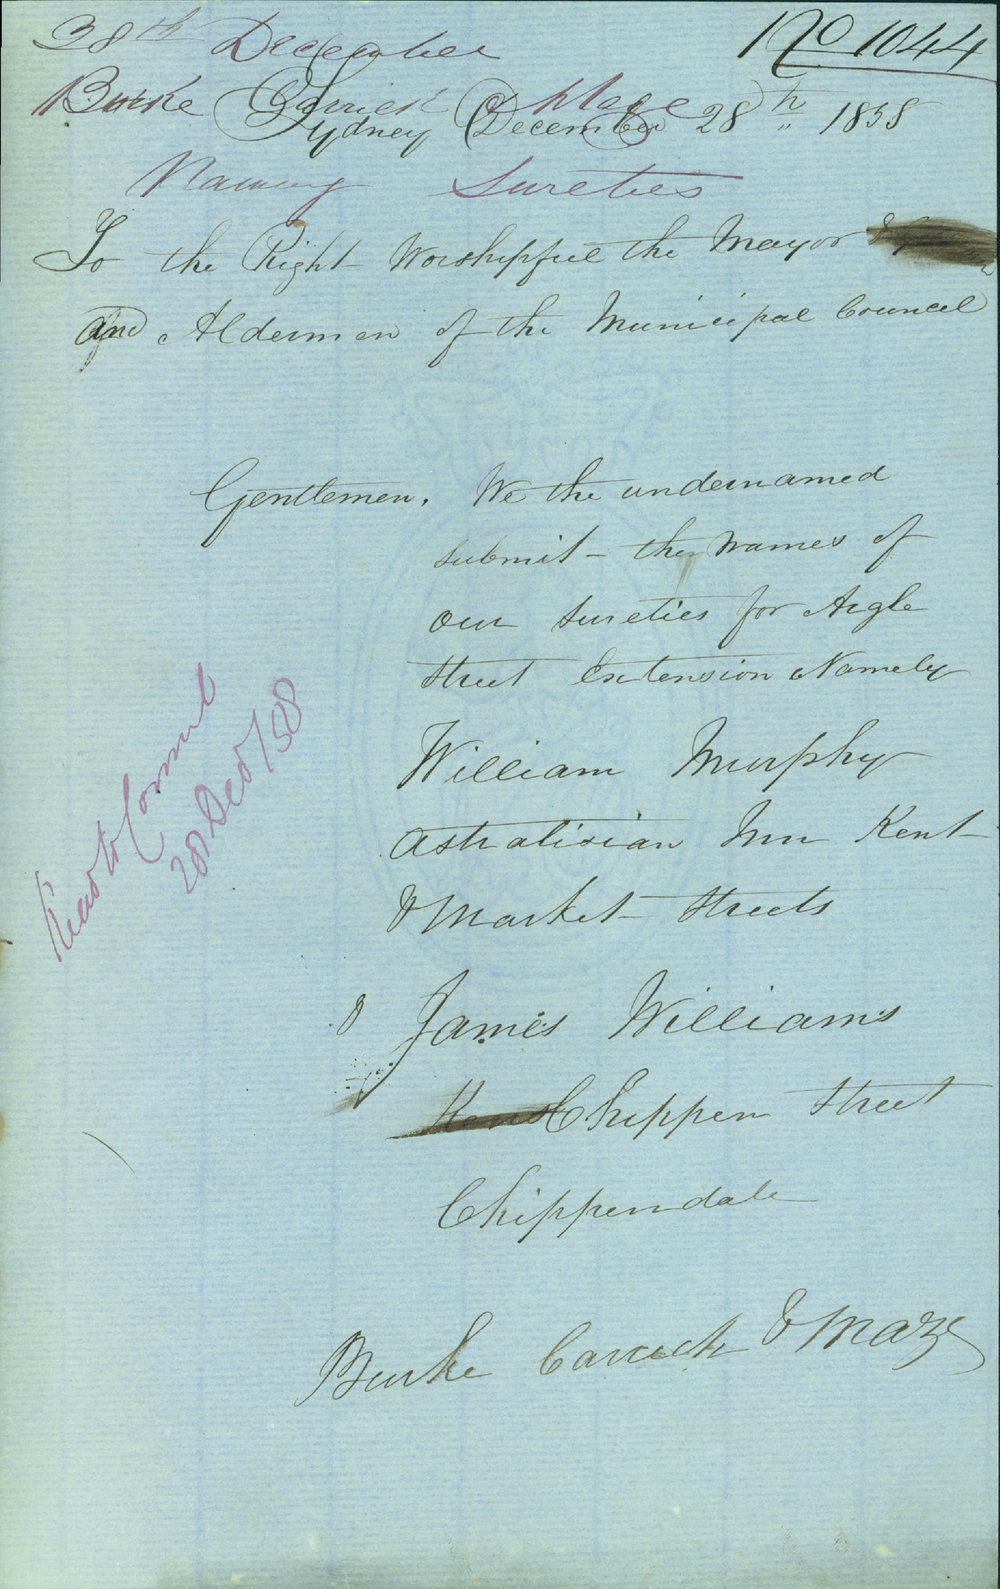 No 1044
28th December
Burke Garrick & Maze
Sydney December 28th 1858
Naming Sureties
To the Right Worshipful the Mayor &
and Aldermen of the Municipal Council
Gentlemen. We the undernamed
submit - the names of
our sureties for Argle
Street Extension Namely
William Murphy
Astralisian Inn Kent
& Market Streets
& James Williams
Kent Chippen Street
Chippendale
Burke Carrick & Maze
28 Decr/58